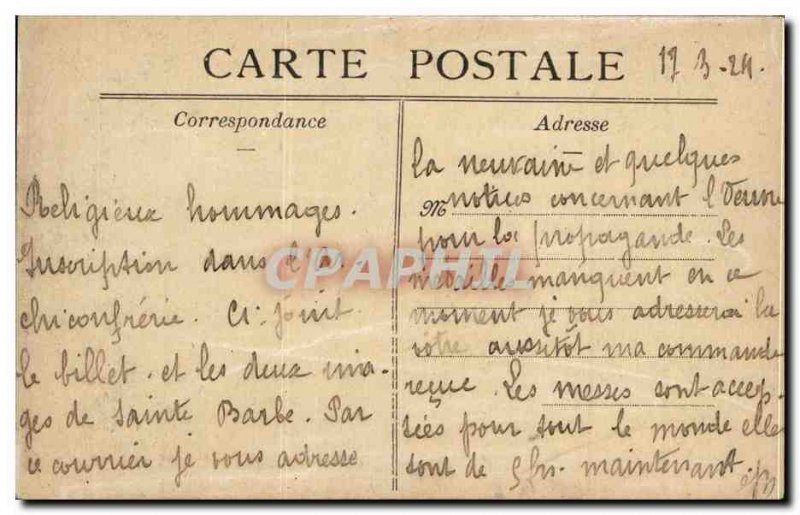 CARTE POSTALE
17 3-24.
Correspondance
Adresse
Religieux hommages.
Inscription dans l'Ar
chiconfrérie. Ci-joint
le billet. et les deux ima-
ges de Sainte Barbe. Par
ce courrier je vous adresse
la neuvaine et quelques
M notices concernant l'
pour la propagande. Les
médailles manquent en ce
moment je vous adresserai la
votre aussitôt ma commande
reçue. Les messes sont accep-
tées pour tout le monde elle
sont de 5 frs. maintenant.
CPAPHIL